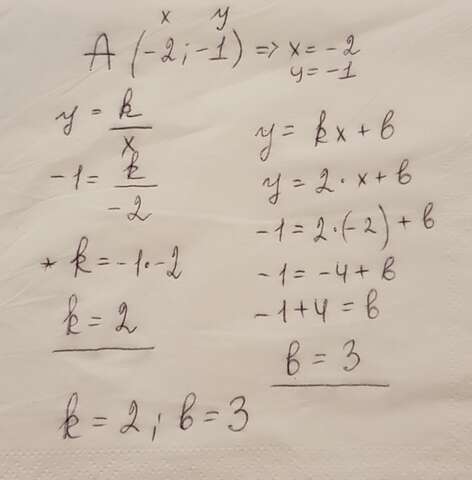 x y
A (-2; -1) => x = -2
y = -1
y = k/x
-1 = k/-2
* k = -1·-2
k = 2
y = kx + b
y = 2·x + b
-1 = 2·(-2) + b
-1 = -4 + b
-1+4 = b
b = 3
k = 2; b = 3